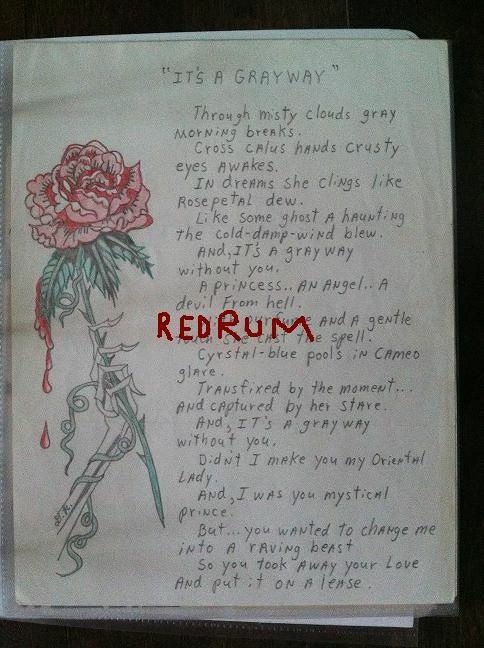 "IT'S A GRAYWAY"
Through misty clouds gray
morning breaks.
Cross calus hands crusty
eyes awakes.
IN dreams she clings like
Rosepetal dew.
Like some ghost A haunting
the cold-damp-wind blew.
And, IT'S A grayway
without you.
A princess.. AN Angel.. A
devil From hell.
perfume AND A gentle
REDRUM
she cast the spell.
Cyrstal-blue pools in CAmeo
glare.
Transfixed by the moment...
And captured by her stare.
And, IT'S A grayway
without you.
Didn't I make you my Oriental
Lady.
And, I was you mystical
prince.
But... you wanted to change me
into A raving beast
So you took away your Love
And put it on A lease.
J.R.